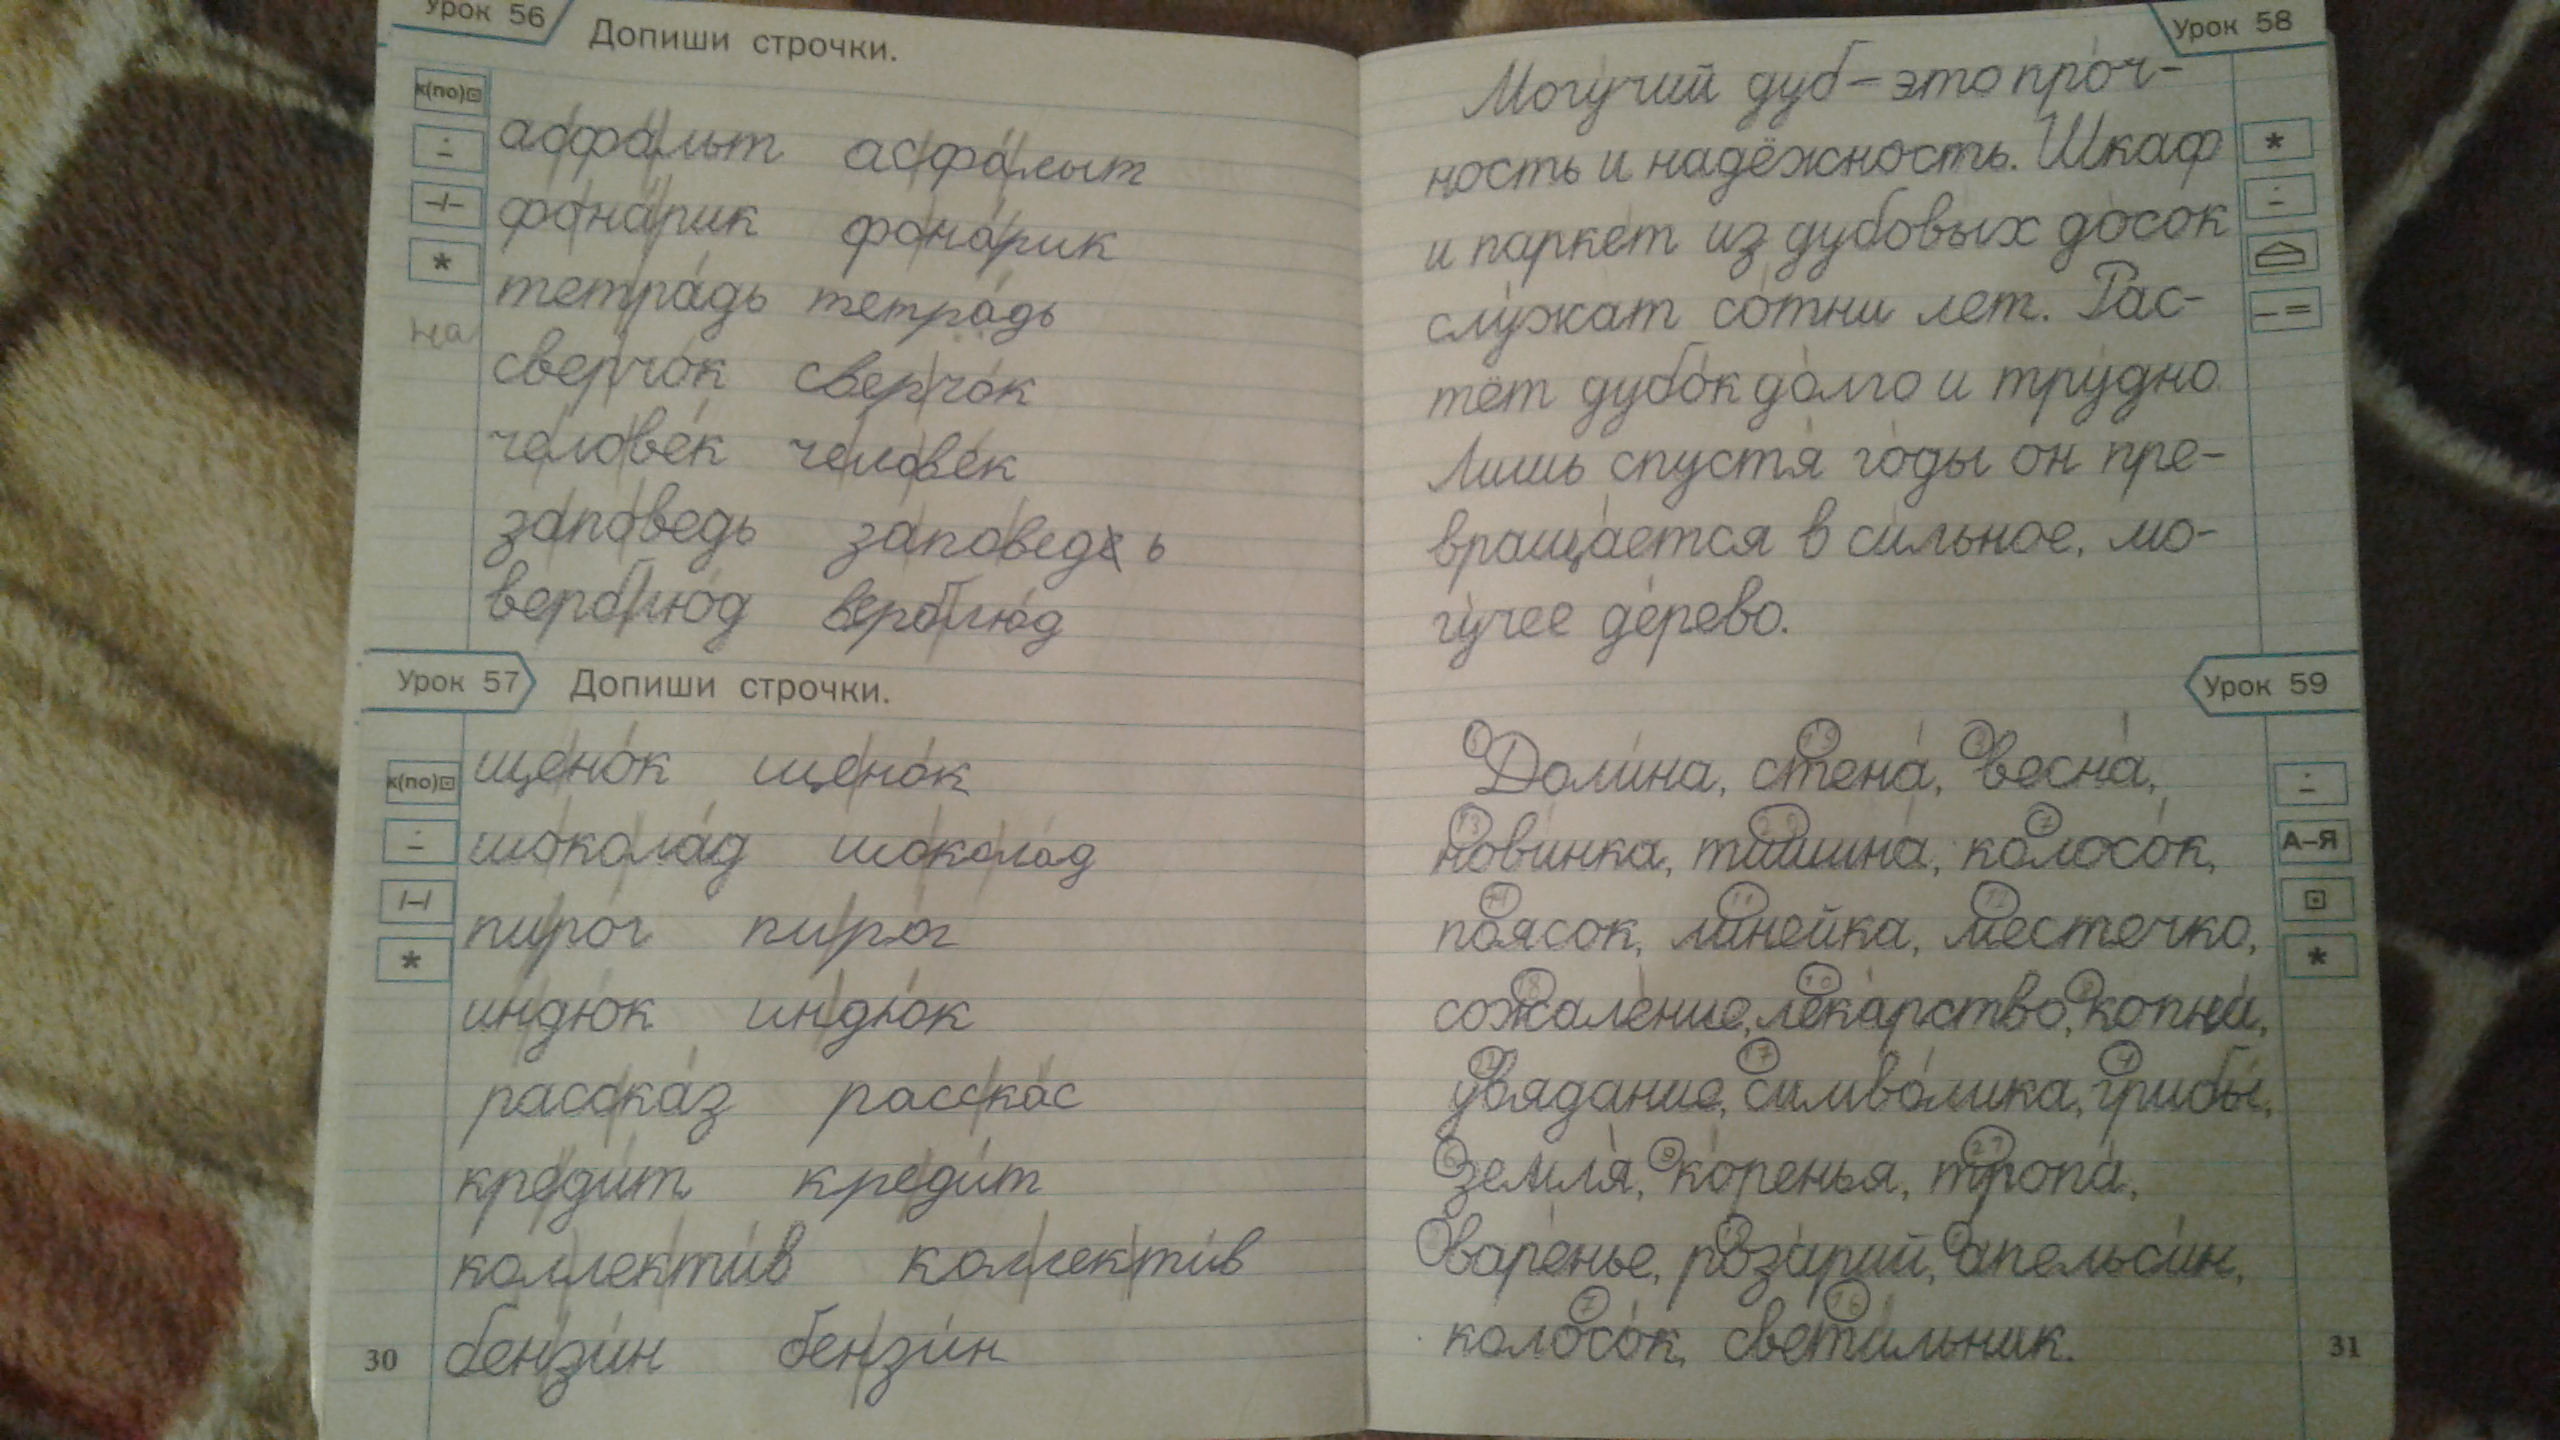 Урок 56
Допиши строчки.
к(по)
*
на
асфальт асфальыт
фонарик фонарик
тетрадь тетрадь
сверчок сверчок
человек человек
заповедь заповедь
верблюд верблюд
Урок 57
Допиши строчки.
к(по)
*
щенок щенок
шоколад шоколад
пирог пирог
индюк индюк
рассказ расскас
кредит кредит
коллектив коллектив
бензин бензин
30
Урок 58
*
Могучий дуб – это проч-
ность и надёжность. Шкаф
и паркет из дубовых досок
служат сотни лет. Рас-
тёт дубок долго и трудно.
Лишь спустя годы он пре-
вращается в сильное, мо-
гучее дерево.
Урок 59
А–Я
*
Долина, стена, весна,
новинка, тишина, колосок,
поясок, линейка, местечко,
сожаление, лекарство, копна,
увядание, символика, грибы,
земля, коренья, тропа,
варенье, розарий, апельсин,
колосок, светильник.
31